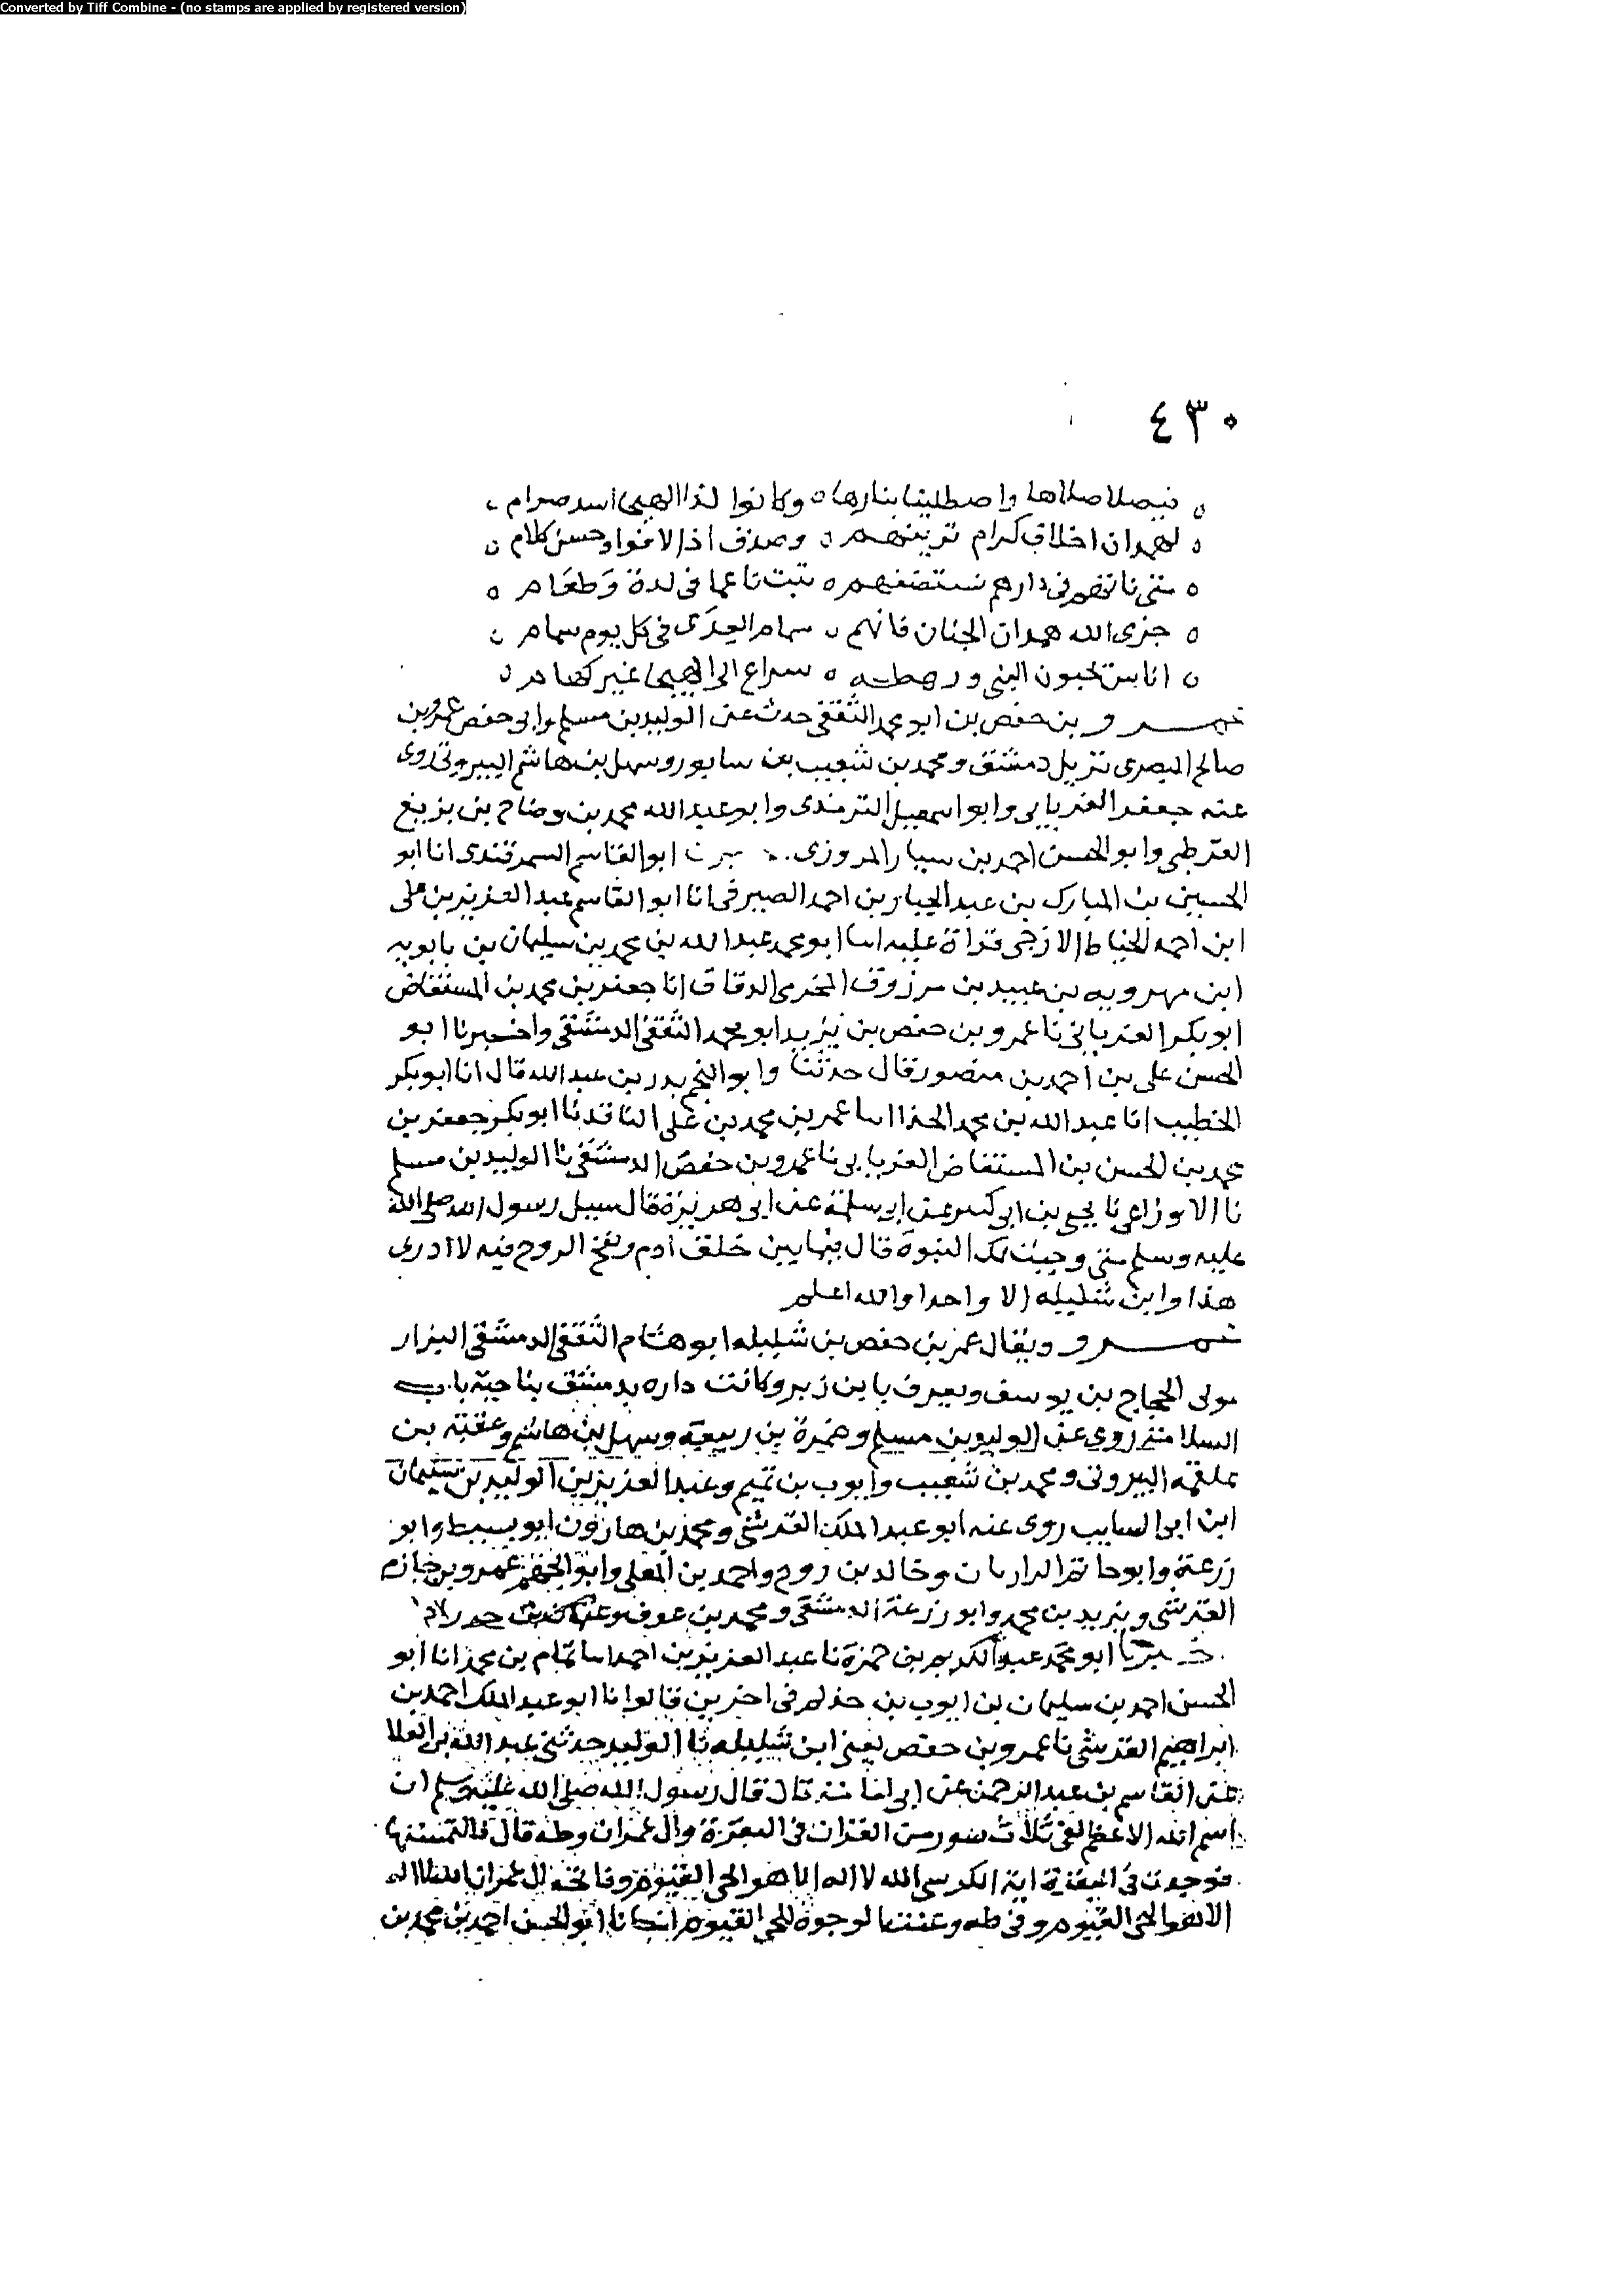 Converted by Tiff Combine - (no stamps are applied by registered version)
٤٣٠
فيصلا صلاها واصطلينا بنارها ه وكانوا لدا الهيجى اسد صرام
لهمدان اخلاق كرام تزينهم ه وصدق اذا لاقوا وحسن كلام ه
ه متى تاتهم فى دارهم تستضفهم ه تبت ناعما فى لدة وَطعَام ه
ه جزى الله همدان الجنان فانهم ه سمام العِدَى فى كل يوم سمام ه
ه اناس تحبون النبى ورهطه ه سراع الى الهيجا غير كهام ه
عمرو بن حفص بن ابو محمد الثقفى حدث عن الوليد بن مسلم وابى حفص عمرو بن
صالح البصرى نزيل دمشق ومحمد بن شعيب بن سابور وسهل بن هاشم البيروتى روى
عنه جعفر الفريابى وابو اسمعيل الترمذى وابو عبد الله محمد بن وضاح بن بزيغ
القرطبى وابو الحسن احمد بن سيار المروزى ابو القاسم السمرقندى انا ابو
الحسين بن المبارك بن عبد الجبار بن احمد الصيرفى انا ابو القاسم عبد العزيز بن على
ابن احمد الخياط الازجى قراة عليه اسا ابو محمد عبد الله بن محمد بن سليمان بن بابويه
ابن مهرويه بن عبيد بن مرزوق المخرمى الدقاق انا جعفر بن محمد بن المستفاض
ابو بكر الفريابى نا عمرو بن حفص بن يزيد ابو محمد الثقفى الدمشقى واخبرنا ابو
الحسن على بن احمد بن منصور قال حدثنا وابو النجم بدر بن عبد الله قال انا ابو بكر
الخطيب انا عبد الله بن محمد الحذا اسا عمر بن محمد بن على الناقد نا ابو بكر جعفر بن
محمد بن الحسن بن المستفاض الفريابى نا عمرو بن حفص الدمشقى نا الوليد بن مسلم
نا الاوزاعى نا يحيى بن ابى كسر عن ابى سلمة عن ابى هريرة قال سيل رسول الله صلى الله
عليه وسلم متى وجبت لك النبوة قال فيما بين خلق ادم ونفخ الروح فيه لا ادرى
هذا وابن شليله الا واحدا والله اعلم
عمرو ويقال عمر بن حفص بن شليله ابو هشام الثقفى الدمشقى البزار
مولى الحجاج بن يوسف ويعرف بابن زبر وكانت داره بدمشق بناحية باب
السلامة روى عن الوليد بن مسلم وضمرة بن ربيعة وسهل بن هاشم وعقبة بن
علقمه البيروتى ومحمد بن شعيب وايوب بن تميم وعبد العزيز بن الوليد بن سليمان
ابن ابى السايب روى عنه ابو عبد الملك القرشى ومحمد بن هارون ابو بسيط وابو
زرعة وابو حاتم الرازيان وخالد بن روح واحمد بن المعلى وابو الجهم عمرو بن خازم
القرشى ويزيد بن محمد وابو زرعة الدمشقى ومحمد بن عوف
ابو محمد عبد الكريم بن حمزة نا عبد العزيز بن احمد اسا تمام بن محمد انا ابو
الحسن احمد بن سليمان بن ايوب بن حذلم فى اخرين قالوا نا ابو عبد الملك احمد بن
ابراهيم القرشى نا عمرو بن حفص يعنى ابن شليله نا الوليد حدثنى عبد الله بن العلا
عن القاسم بن عبد الرحمن عن ابى امامة قال قال رسول الله صلى الله عليه وسلم ان
اسم الله الاعظم لفى ثلاث سور من القران فى البقرة وال عمران وطه قال فالتمستها
فوجدت فى البقرة اية الكرسى الله لا اله الا هو الحى القيوم وفاتحة ال عمران الله لا اله
الا هو الحى القيوم وفى طه وعنت الوجوه للحى القيوم انبانا ابو الحسن احمد بن محمد بن